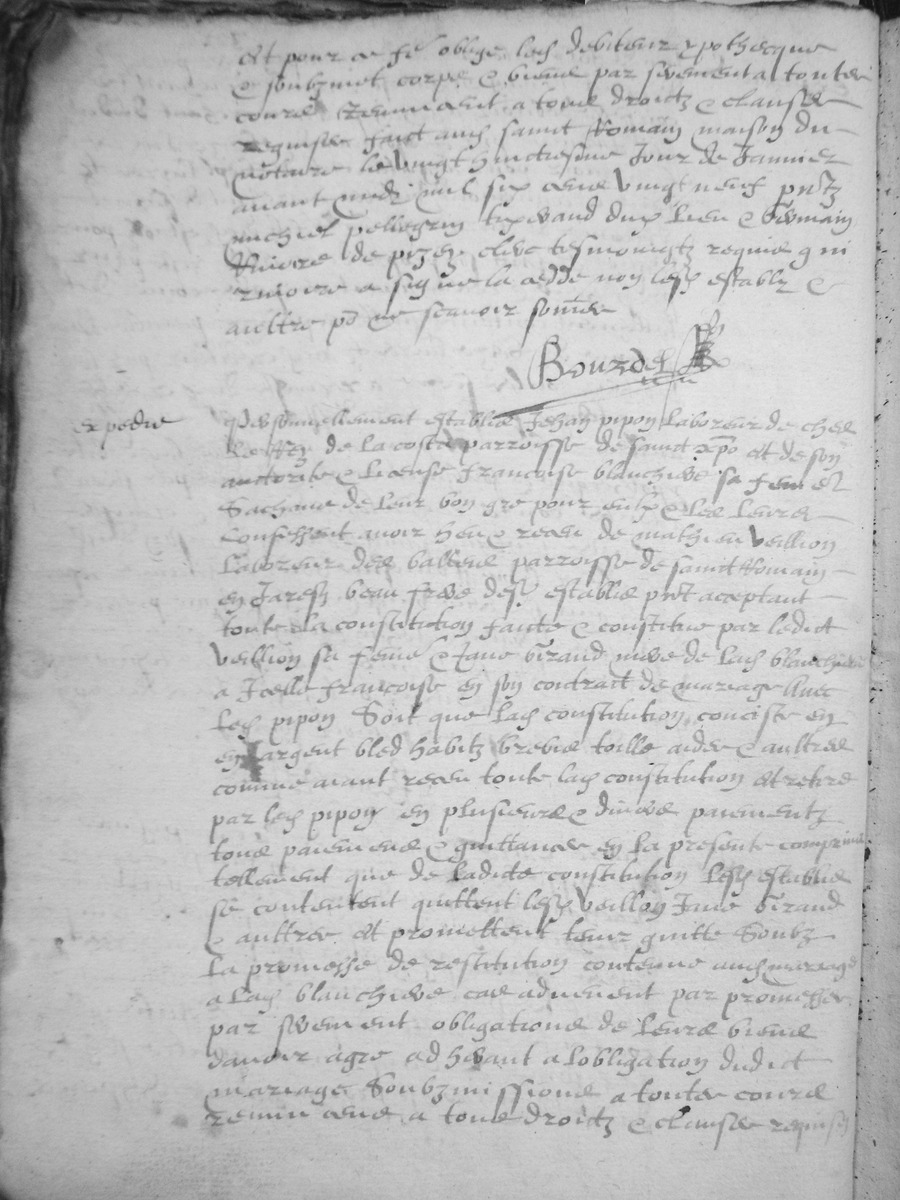 Et pour ce fe oblige led debiteur ypothecque
& soubzmet corps & biens par serement a toutes
cours renuncent a tous droictz & clauses
requises faict aud sainct Romain maison du
notaire le vingt huictiesme Jour de Janvier
avant midi mil six cens vingt neuf pntz
michiel pellegrin tisserand dud lieu & Germain
Rivoire de clerc tesmoingtz requis q ni
rivoire a signe la cedde non lesd establz &
aultre po ne scavoir sommes
Bourdel
expedie
Personnellement establis Jehan pipon laboreur de chez
de la coste parroisse de sainct xpo et de son
auctorite & license francoise blancheve sa feme
Sachans de leur bon gre pour eulx & les leurs
Confessent avoir heu & receu de mathieu veillion
laboreur des balleus parroisse de sainct Romain
en Jarestz beau frere desd establis pnt acceptant
toute la constitution faicte & constitue par ledict
veillion sa feme & Jane Girand mere de lad blancheve
a Icelle francoise en son contraict de mariage avec
led pipon Soit que lad constitution conciste en
en argent bled habitz brebis toille aides & aultres
comme aiant receu toute lad constitution et retire
par led pipon en plusieurs & divers paiementz
tous paiemens & quittances en la presente comprins
tellement que de ladicte constitution lesd establis
se contentent quittent lesd veillon Jane Girand
& aultres et promettent tenir quitte Soubz
la promesse de restitution contenue aud mariage
a lad blancheve cas advenent par promesses
par serement obligations de leurs biens
davoir agre adherant a lobligation dudict
mariage Soubzmissions a toutes cours
renuncens a tous droictz & clauses requises